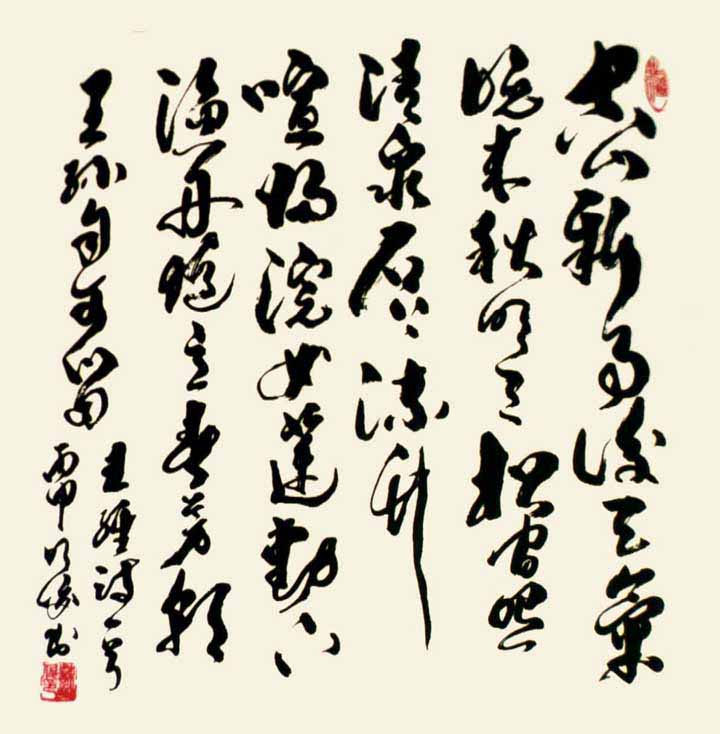 空山新雨後天氣
晚來秋明月松間照
清泉石上流竹
喧歸浣女蓮動下
漁舟隨意春芳歇
王孫自可留
王維詩一首
丙申書